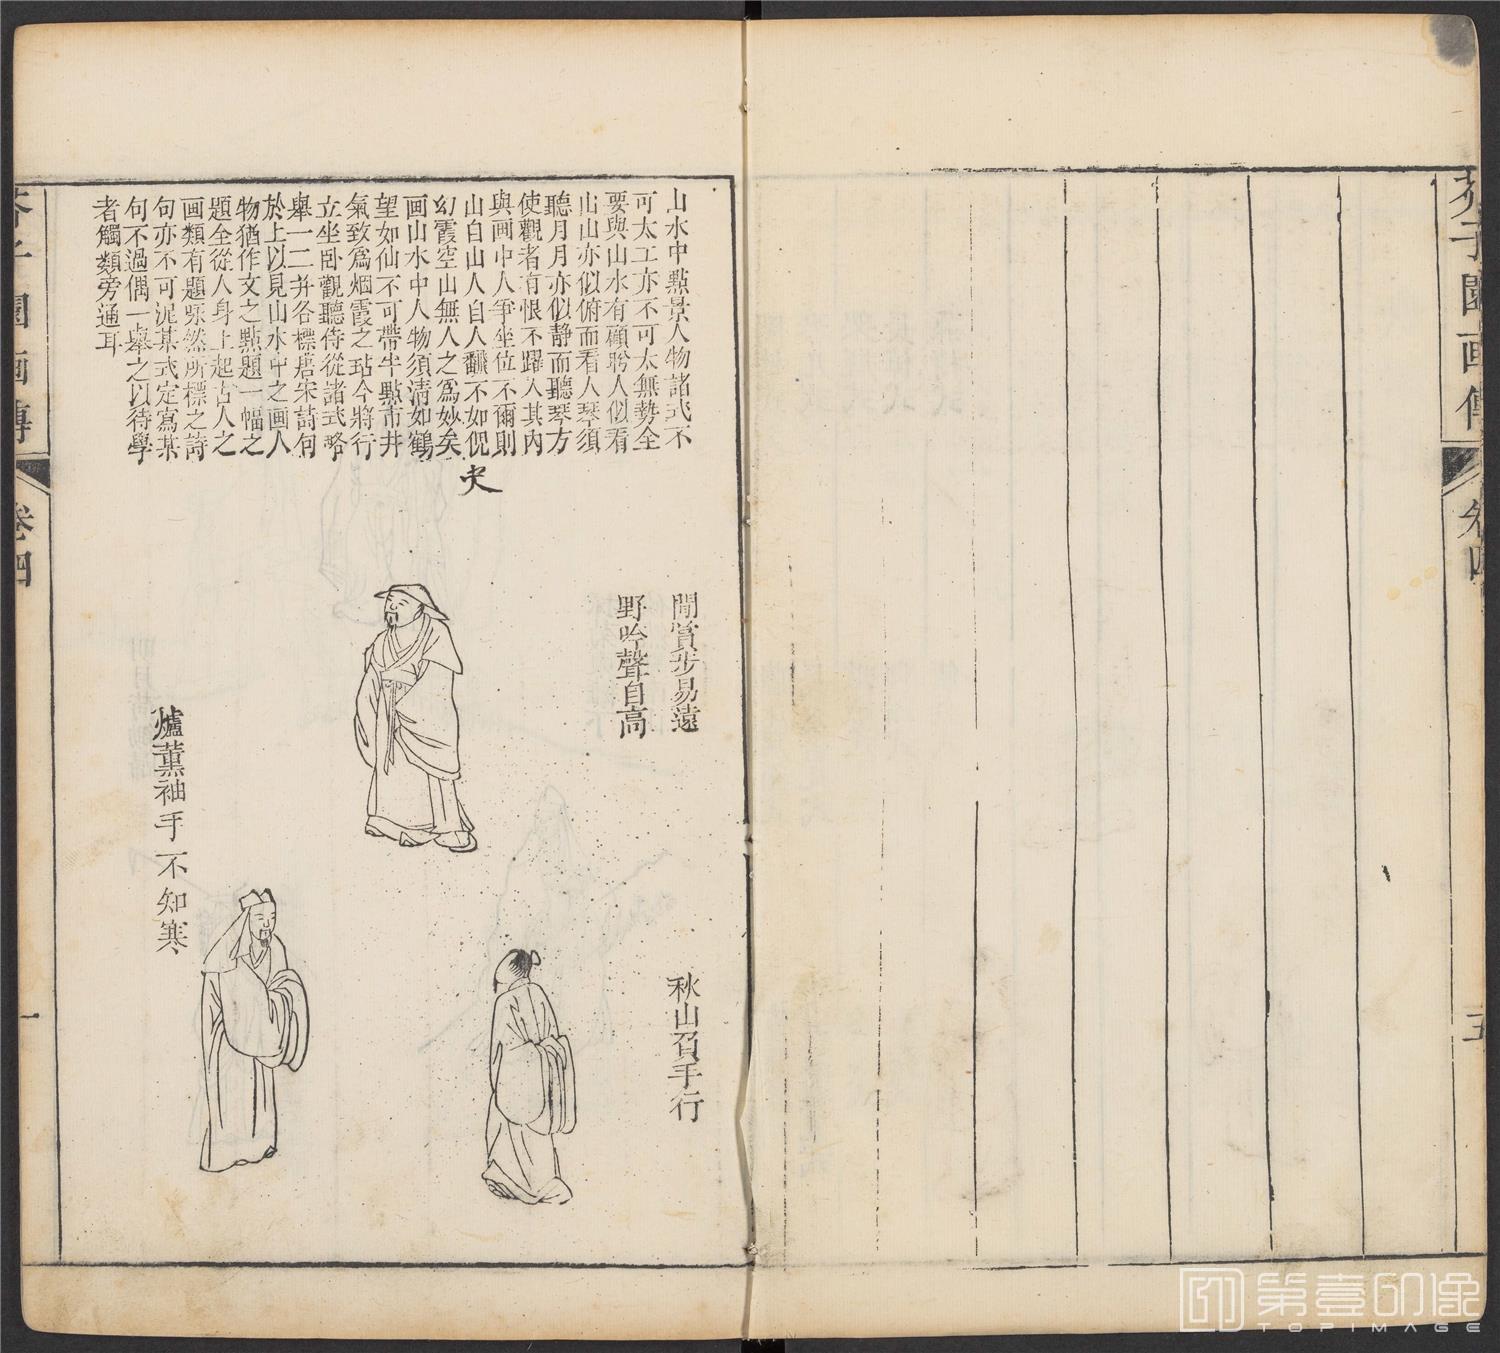 芥子園畫傳
卷四
五
山水中點景人物諸式不
可太工亦不可太無勢全
要與山水有顧盻人似看
山山亦似俯而看人琴須
聽月月亦似静而聽琴方
使觀者有恨不躍入其內
與画中人爭坐位不爾則
山自山人自人翻不如倪
幻霞空山無人之爲妙矣
画山水中人物須清如鶴
望如仙不可帶半點市井
氣致爲烟霞之玷今將行
立坐卧觀聽侍從諸式略
舉一二幷各標唐宋詩句
於上以見山水中之画人
物猶作文之點題一幅之
題全從人身上起古人之
画類有題𠱾然所標之詩
句亦不可泥某式定寫某
句不過偶一舉之以待學
者觸類旁通耳
閒賞步易遠
野吟聲自高
秋山負手行
爐薰袖手不知寒
芥子園画傳
卷四
一
第壹印像
TOPIMAGE